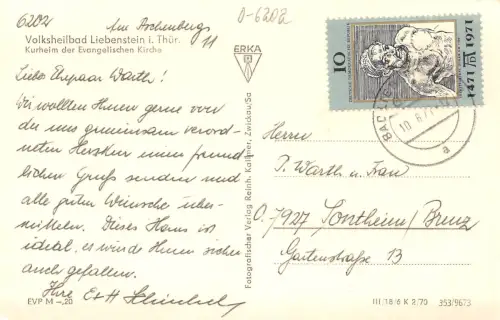 6202
Am Aschenberg
11
0-6202
Volksheilbad Liebenstein i. Thür.
Kurheim der Evangelischen Kirche
Liebes Ehepaar Warth!
Wir wollten Ihnen gerne von
der uns gemeinsam verord-
neten Herzkur einen freund-
lichen Gruß senden und
alle guten Wünsche über-
mitteln. Dieses Haus ist
ideal, es würde Ihnen sicher
auch gefallen.
Ihre E+H
EVP M –,20
ERKA
Fotografischer Verlag Reinh. Kallmer, Zwickau/Sa
10
1471 1971
BAD LIE
10.
a
Herrn
P. Warth u. Frau
7927 Sontheim/Brenz
Gartenstraße 13
III 18/6 K 2/70 353/9673